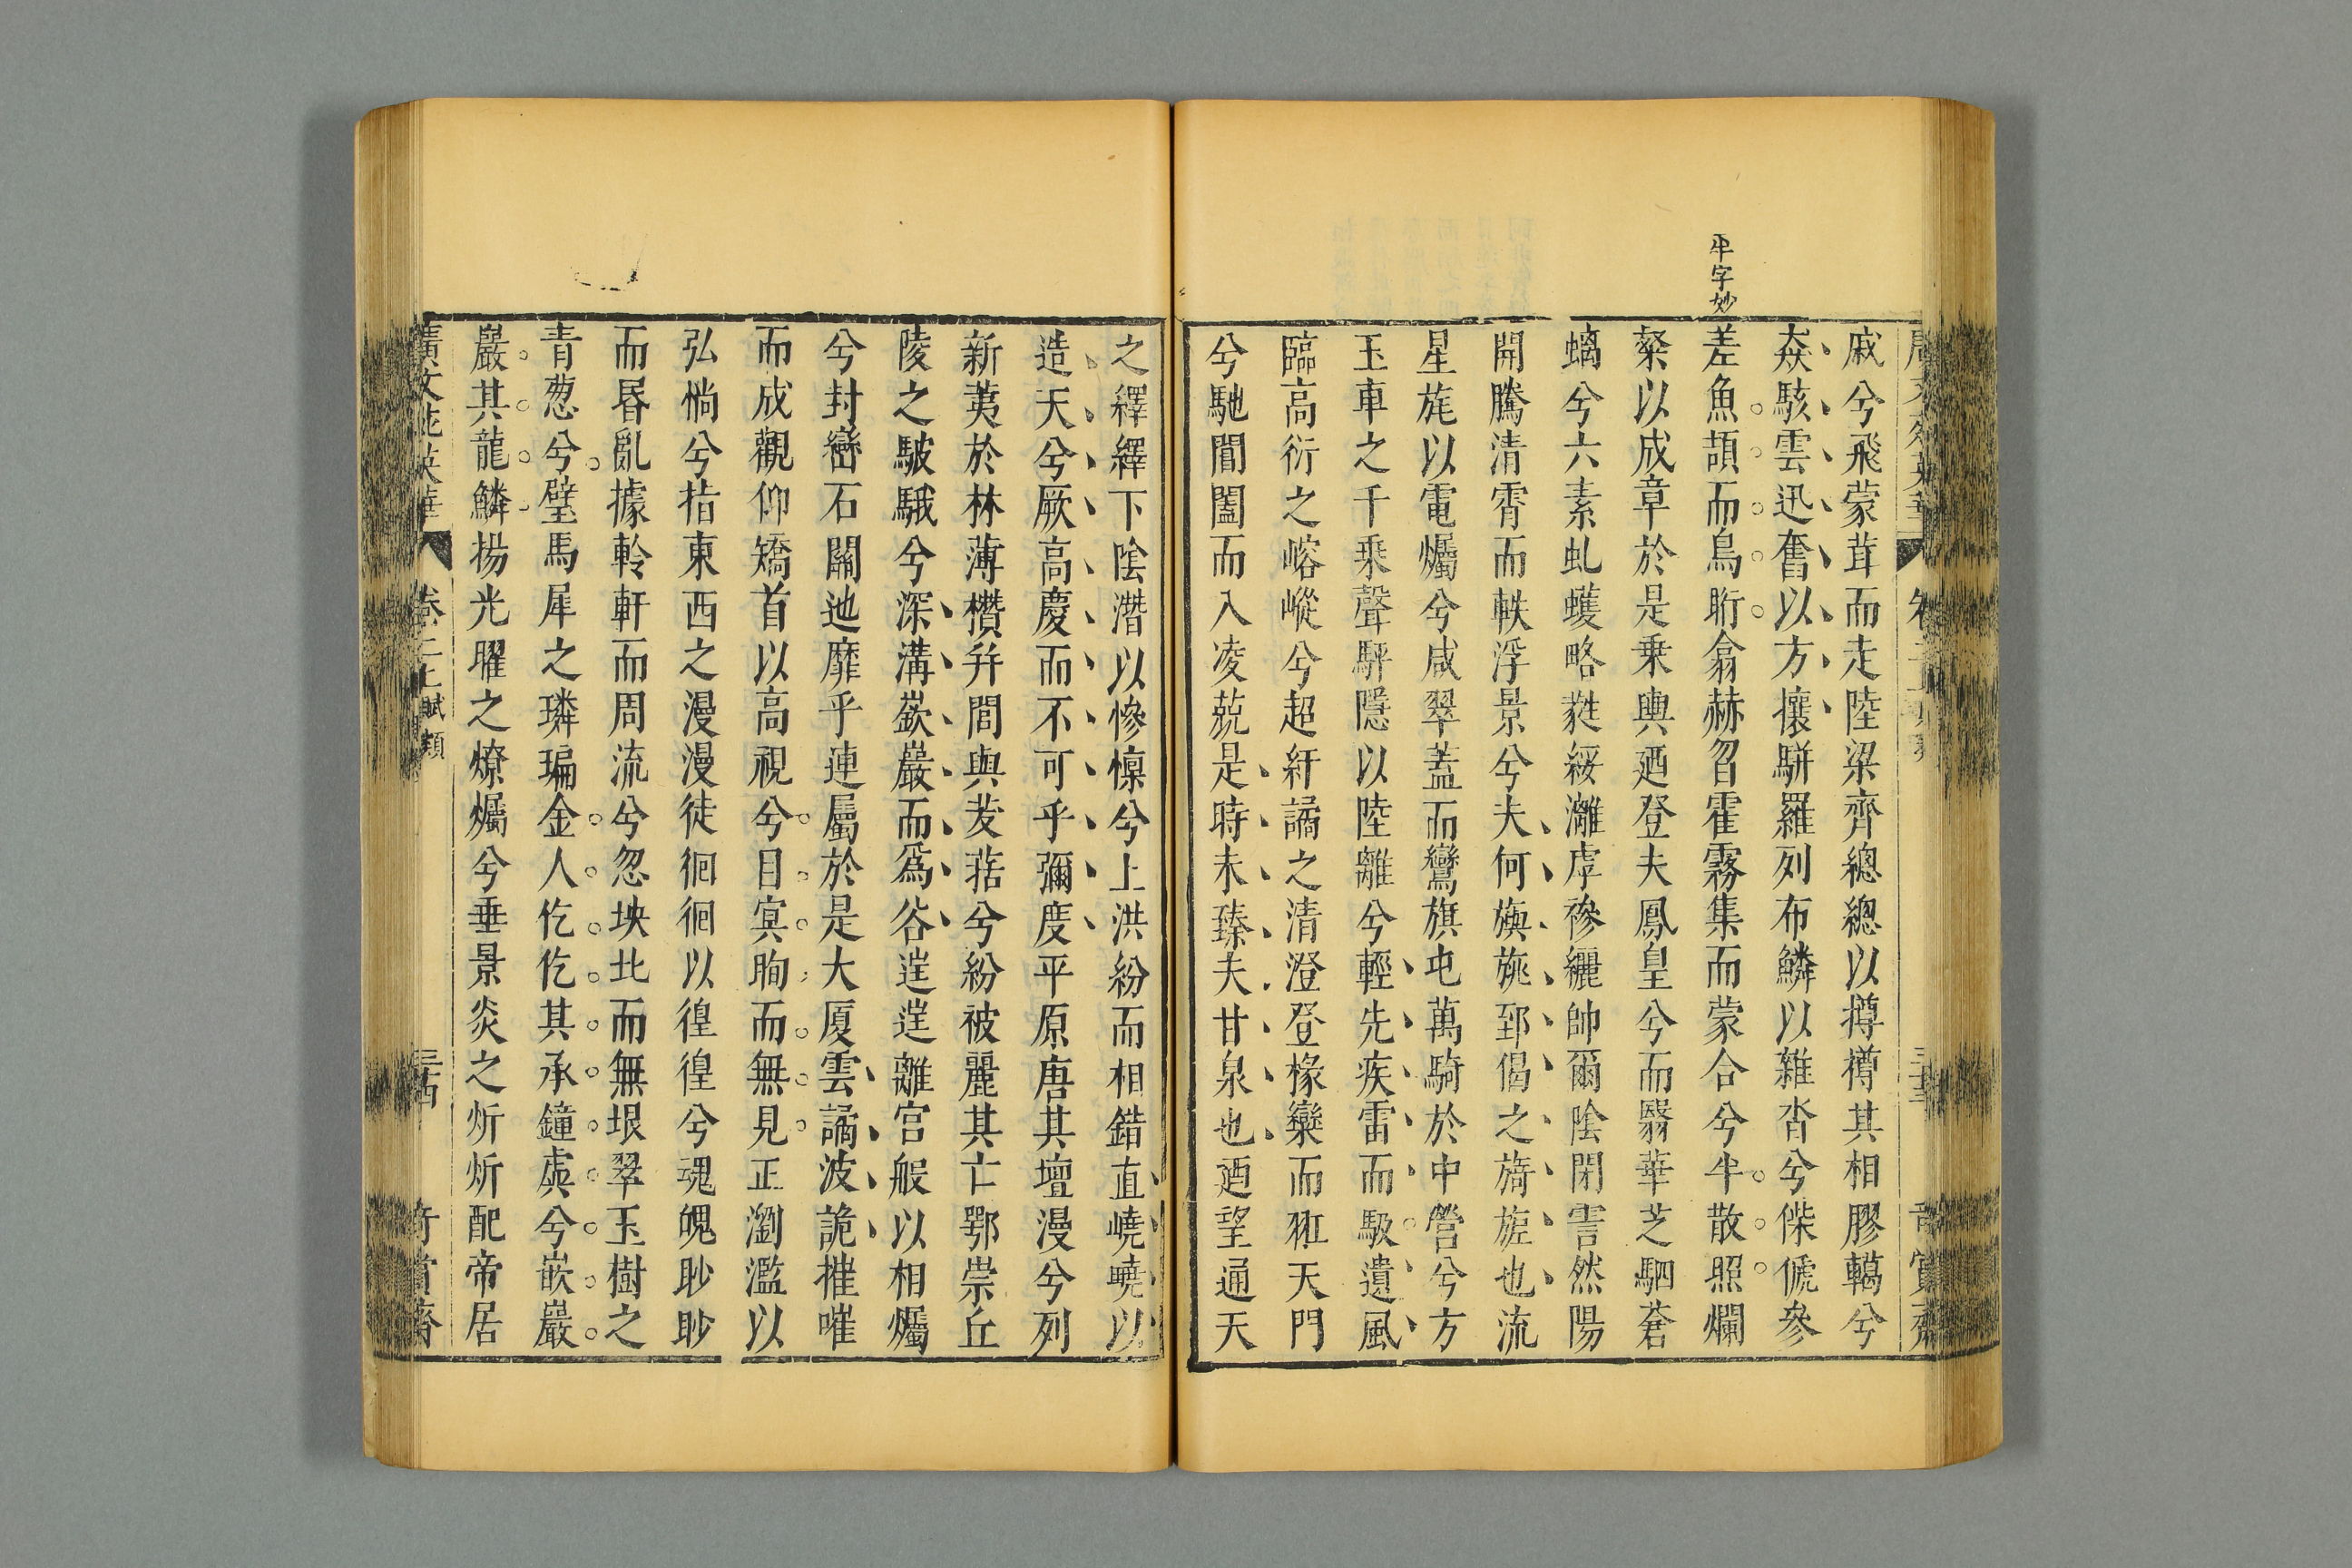 半字妙
戚兮飛蒙茸而走陸梁齊總總以撙撙其相膠轕兮
猋駭雲迅奮以方攘駢羅列布鱗以雜沓兮傑傂參
差魚頡而鳥䀪翕赫曶霍霧集而蒙合兮半散照爛
粲以成章於是乗輿廼登夫鳳皇兮而翳華芝駟蒼
螭兮六素虬蠖略蕤綏灕虖襂纚帥爾陰閉霅然陽
開騰清霄而軼浮景兮夫何旟旐郅偈之旖旎也流
星旄以電爥兮咸翠蓋而鸞旗屯萬騎於中營兮方
玉車之千乗聲駍隱以陸離兮輕先疾雷而馺遺風
臨高衍之嵱嵷兮超紆譎之清澄登椽欒而羾天門
兮馳閶闔而入凌兢是時未臻夫甘泉也廼望通天
之繹繹下陰潛以慘懍兮上洪紛而相錯直嶢嶢以
造天兮厥高慶而不可乎彌度平原唐其壇漫兮列
新荑於林薄欑幷閭與茇葀兮紛被麗其亡鄂崇丘
陵之駊騀兮深溝嶔巖而爲谷𨓹𨓹離宮般以相爥
兮封巒石關迆靡乎連屬於是大厦雲譎波詭摧嗺
而成觀仰矯首以高視兮目㝠眴而無見正瀏濫以
弘惝兮指東西之漫漫徒徊徊以徨徨兮魂魄眇眇
而昬亂據軨軒而周流兮忽坱圠而無垠翠玉樹之
青葱兮璧馬犀之瞵㻞金人仡仡其承鐘虡兮嵌巖
巖其龍鱗揚光曜之燎爥兮垂景炎之炘炘配帝居
廣文選英華 卷二上 賦類 三四